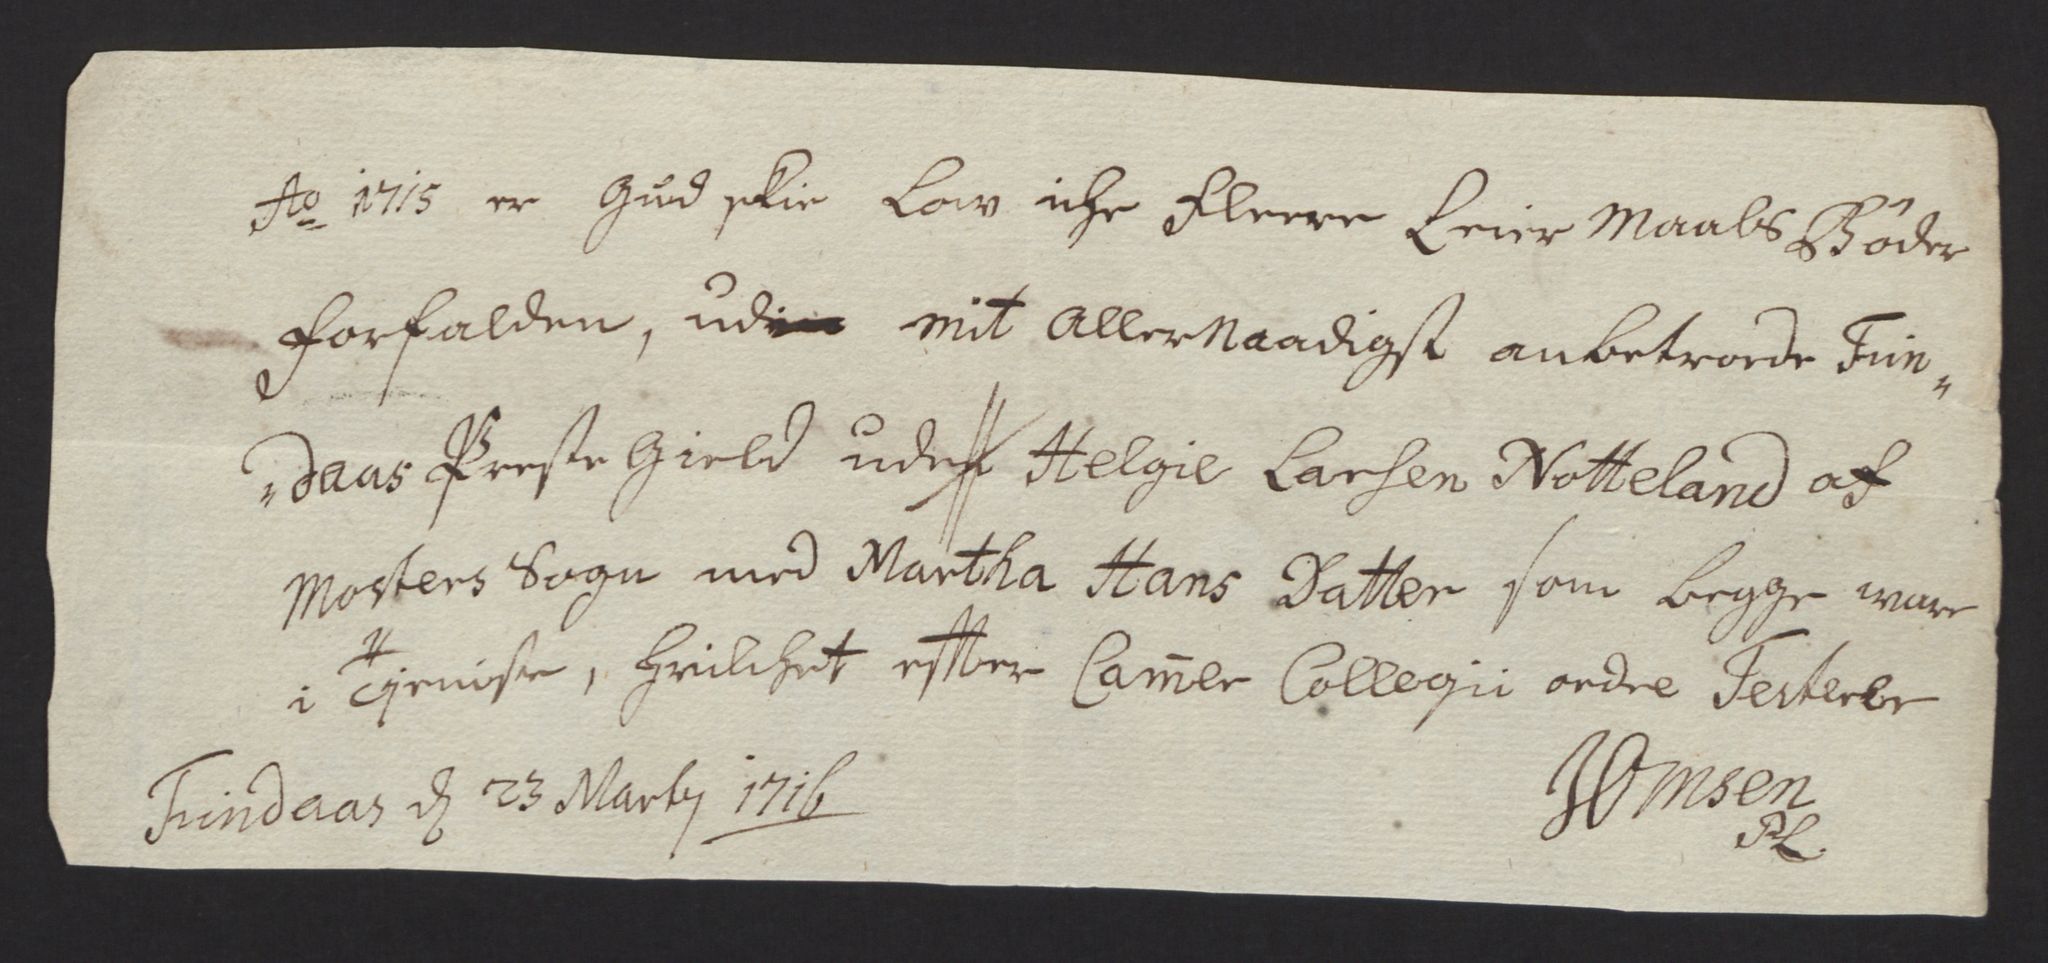 Ao 1715 er Gud skie Low iche fleere Leier Maals Böder
forfalden, udi mit Allernaadigst anbetroede Fin„
„daas Præste Gield uden Helgie Larsen Notteland af
Mosters Sogn med Martha Hans Datter som begge ware
i Tjeniste, hvilchet effter Camer Collegii ordre Testerer
Findaas d 23 Martij 1716
Omsen
PL